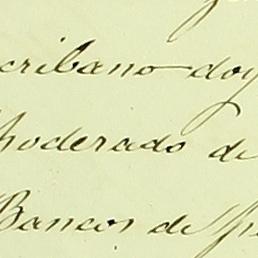 cribano doy
poderado de
Bancos de